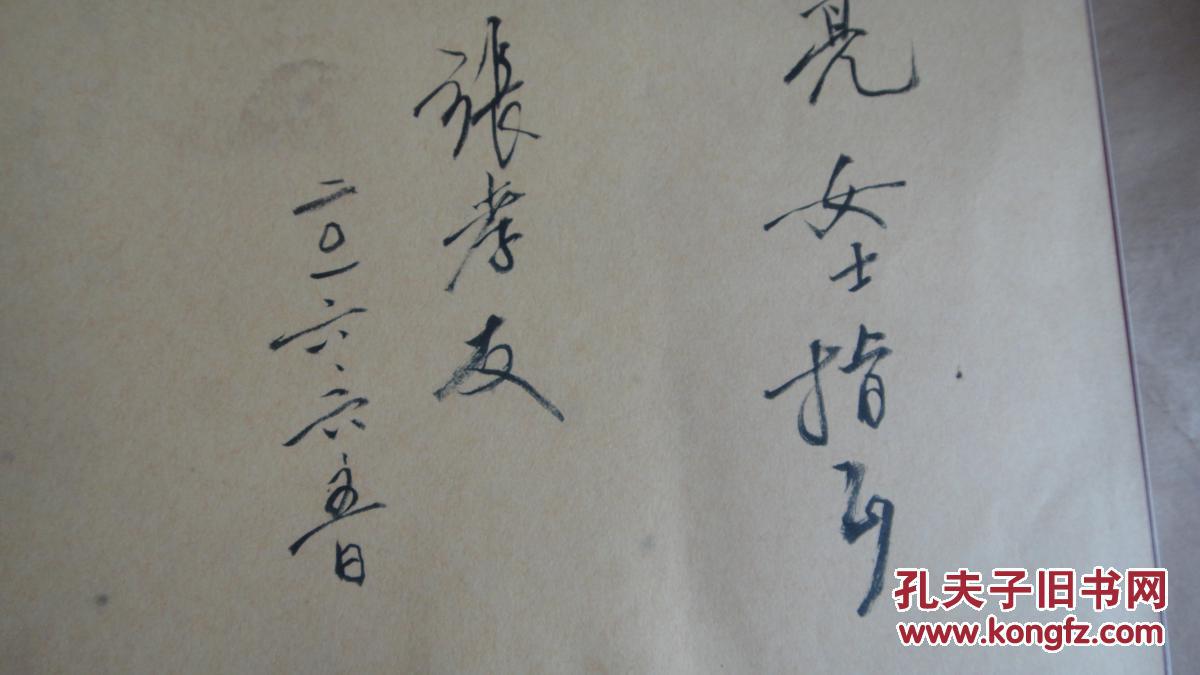 亮女士指正
張孝友
二〇一六、六、日
孔夫子旧书网
www.kongfz.com